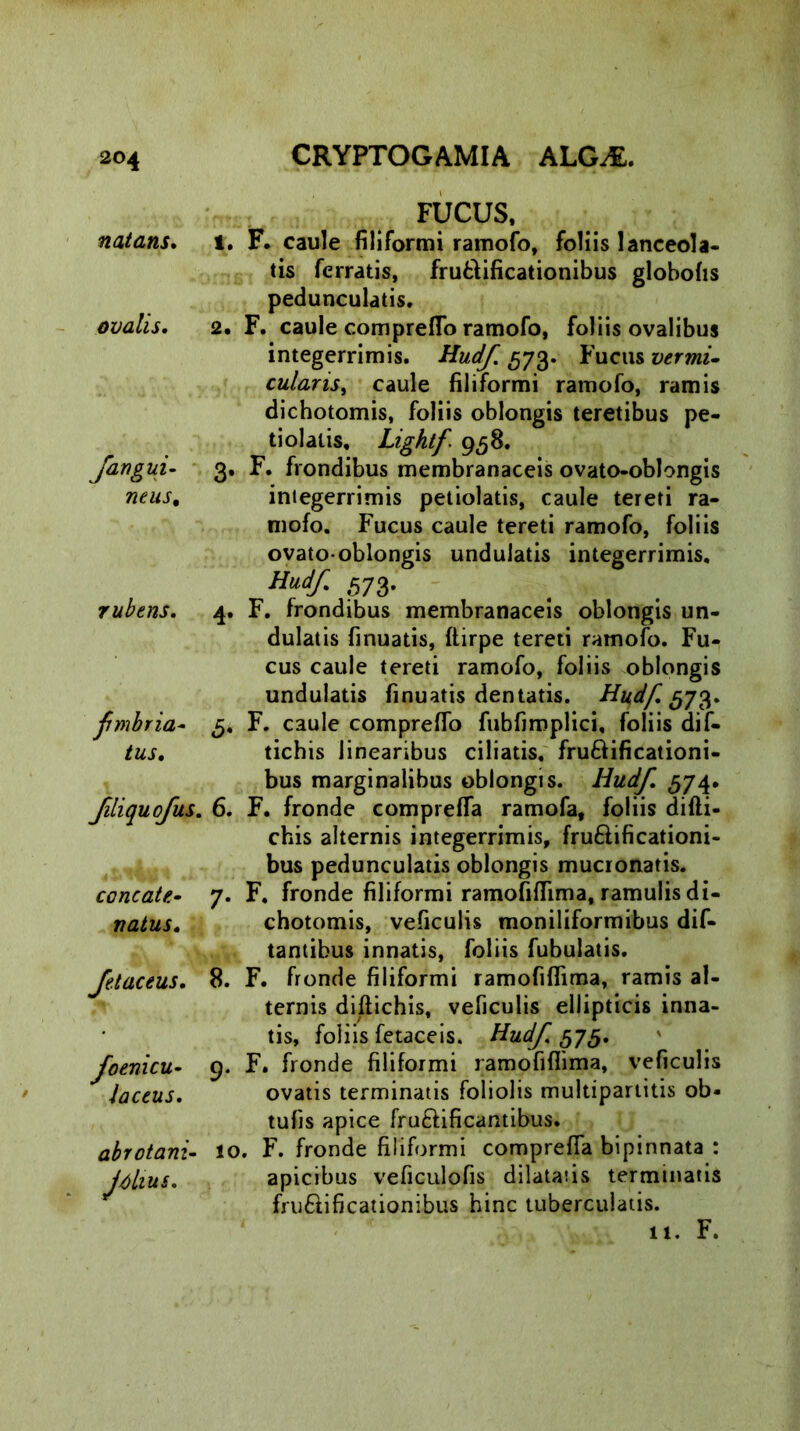 204 CRYPTOGAMIA ALGÆ.
FUCUS.
natans. 1. F. caule filiformi ramoſo, foliis lanceola-
tis ſerratis, fructificationibus globoſis
pedunculatis.
ovalis. 2. F. caule compreſſo ramoſo, foliis ovalibus
integerrimis. Hudſ. 573. Fucus vermi-
cularis, caule filiformi ramoſo, ramis
dichotomis, foliis oblongis teretibus pe-
tiolatis. Lightf. 958.
ſangui- 3. F. frondibus membranaceis ovato-oblongis
neus. integerrimis petiolatis, caule tereti ra-
moſo. Fucus caule tereti ramoſo, foliis
ovato-oblongis undulatis integerrimis.
Hudſ. 573.
rubens. 4. F. frondibus membranaceis oblongis un-
dulatis ſinuatis, ſtirpe tereti ramoſo. Fu-
cus caule tereti ramoſo, foliis oblongis
undulatis ſinuatis dentatis. Hudſ. 573.
fimbria- 5. F. caule compreſſo ſubſimplici, foliis diſ-
tus. tichis linearibus ciliatis, fructificationi-
bus marginalibus oblongis. Hudſ. 574.
ſiliquoſus. 6. F. fronde compreſſa ramoſa, foliis diſti-
chis alternis integerrimis, fructificationi-
bus pedunculatis oblongis mucronatis.
concate- 7. F. fronde filiformi ramoſiſſima, ramulis di-
natus. chotomis, veſiculis moniliformibus diſ-
tantibus innatis, foliis ſubulatis.
ſetaceus. 8. F. fronde filiformi ramoſiſſima, ramis al-
ternis diſtichis, veſiculis ellipticis inna-
tis, foliis ſetaceis. Hudſ. 575.
foenicu- 9. F. fronde filiformi ramoſiſſima, veſiculis
laceus. ovatis terminatis foliolis multipartitis ob-
tuſis apice fructificantibus.
abrotani- 10. F. fronde filiformi compreſſa bipinnata :
folius. apicibus veſiculoſis dilatatis terminatis
fructificationibus hinc tuberculatis.
11. F.